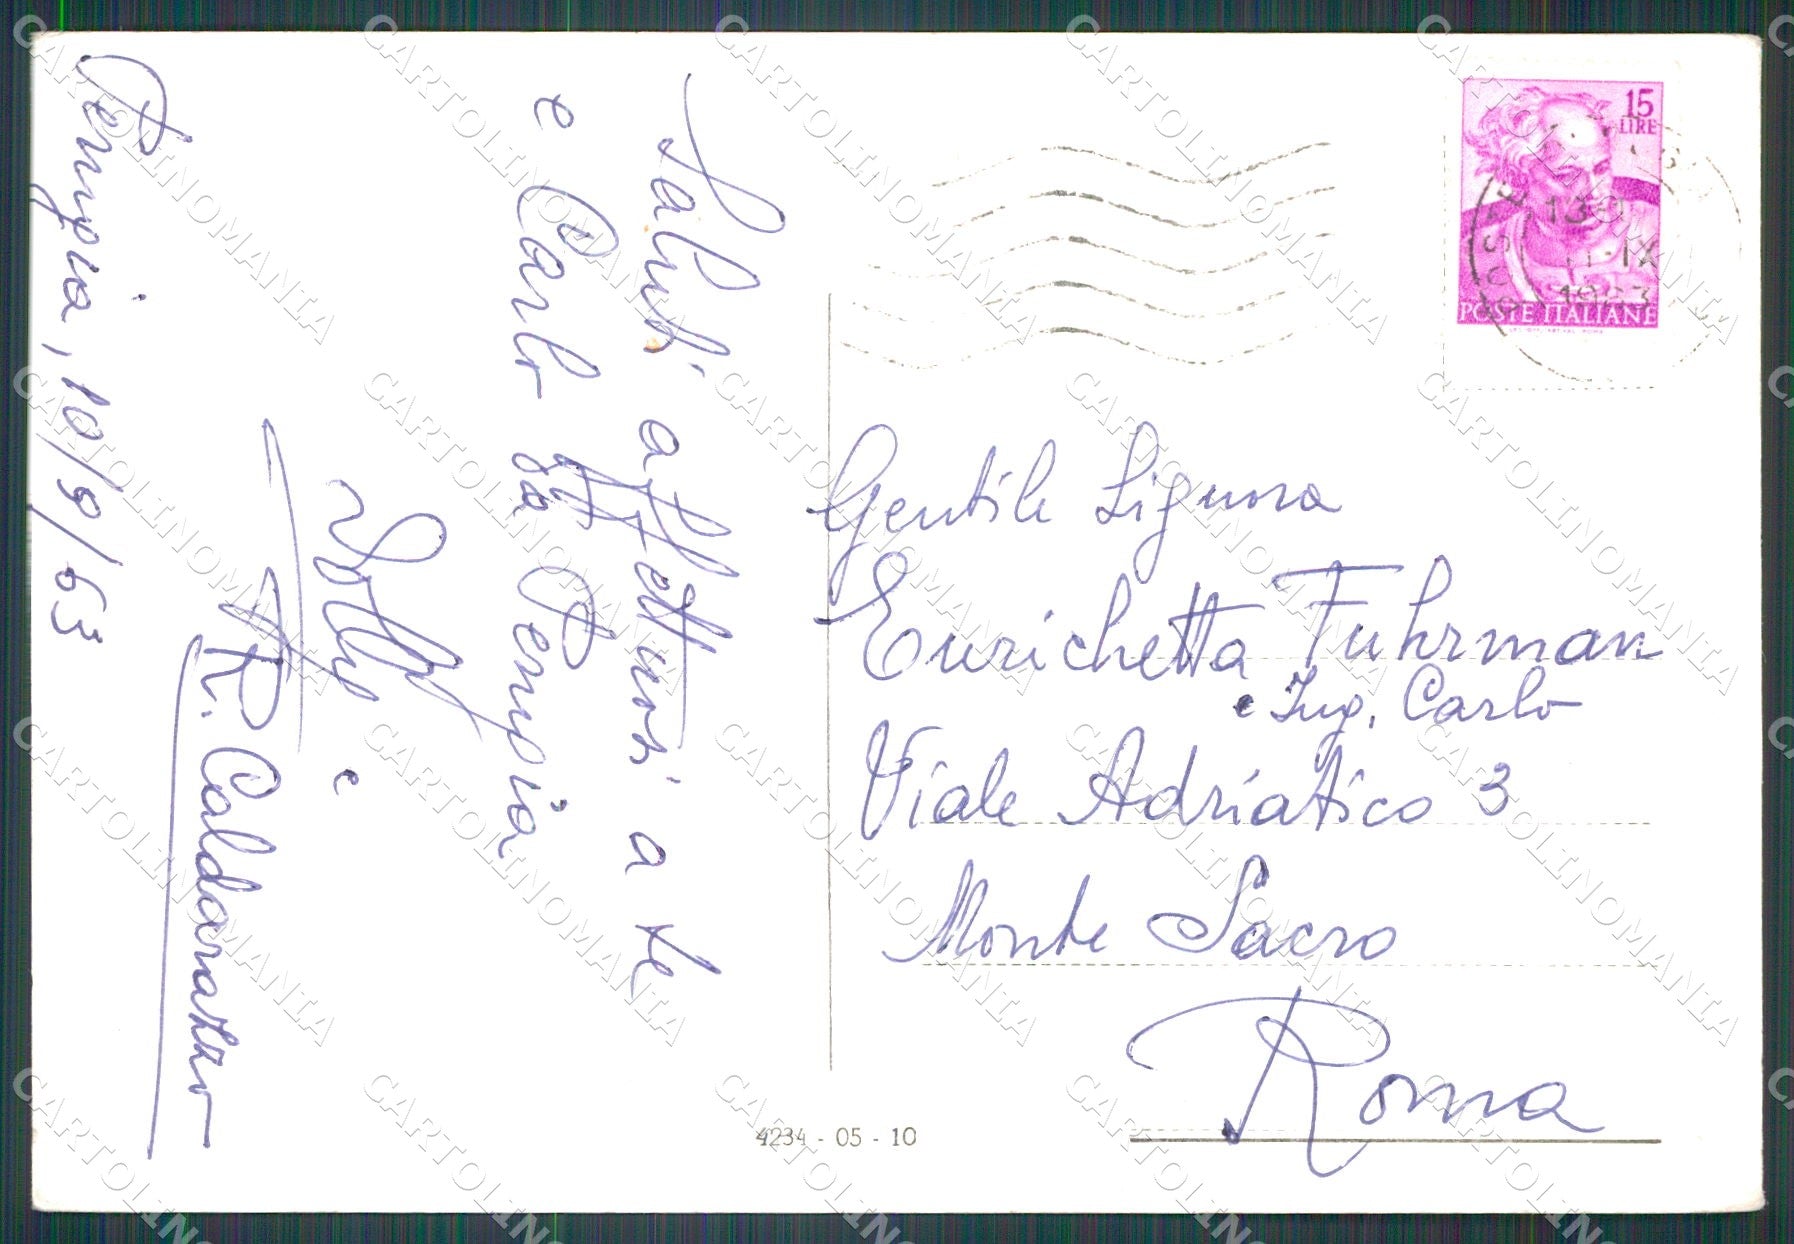 Saluti affettuosi a te
e Carlo da Perugia
Dolly e
R. Caldarazzo
Perugia, 10/9/63
15
LIRE
POSTE ITALIANE
13
11·IX
1963
Gentile Signora
Enrichetta Fuhrman
e Ing. Carlo
Viale Adriatico 3
Monte Sacro
Roma
4234 - 05 - 10
CARTOLINOMANIA